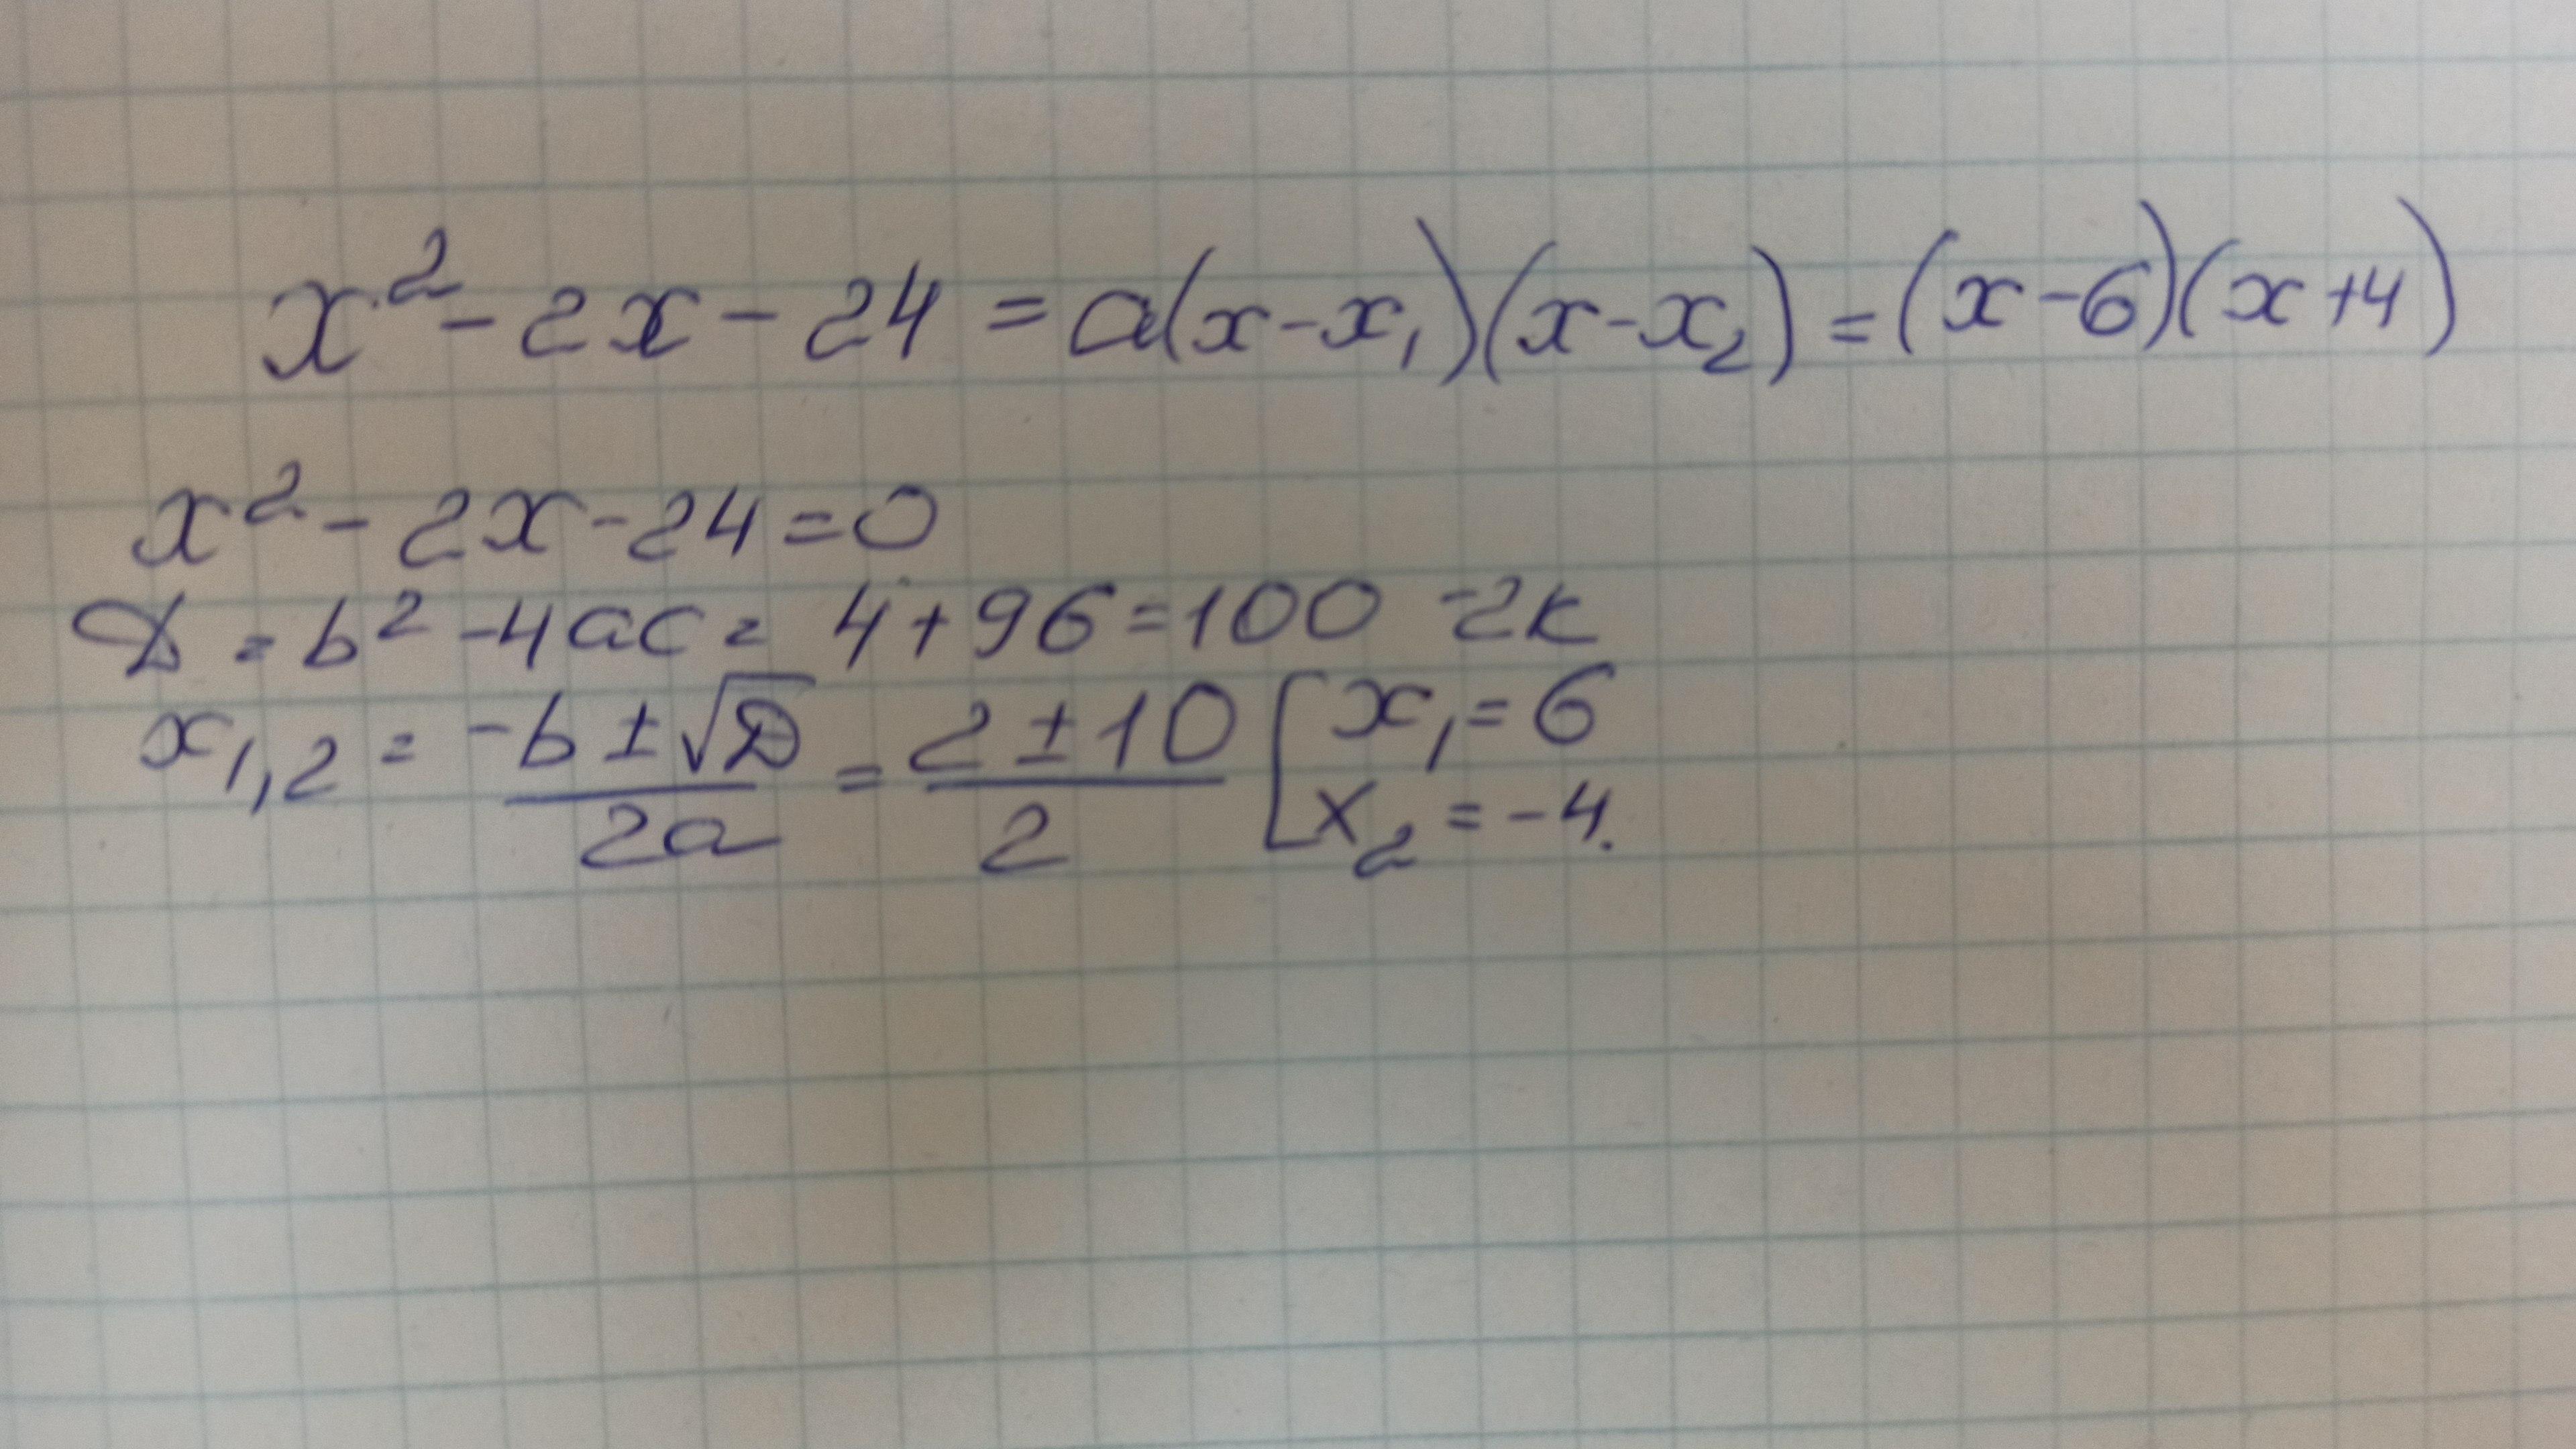 x² - 2x - 24 = a(x - x₁)(x - x₂) = (x - 6)(x + 4)
x² - 2x - 24 = 0
D = b² - 4ac = 4 + 96 = 100 - 2к
x₁,₂ = (-b ± √D)/2a = (2 ± 10)/2 [ x₁ = 6
x₂ = -4.